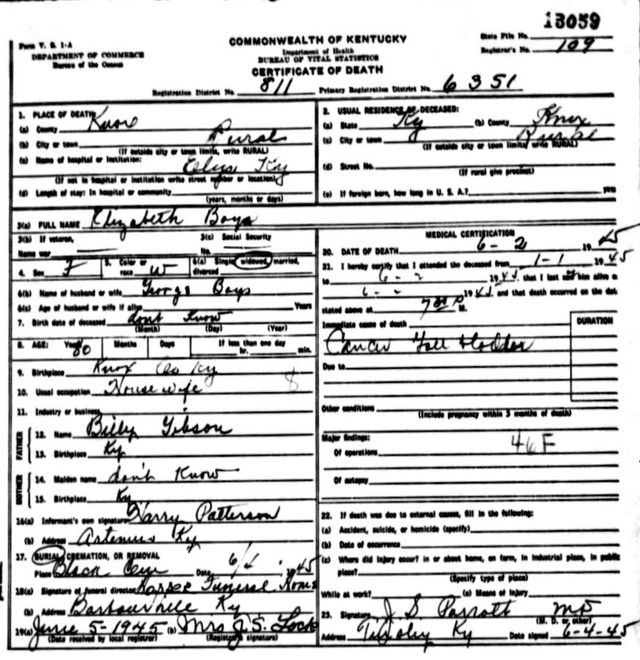 13059
Form V. S. 1-A
DEPARTMENT OF COMMERCE
Bureau of the Census
COMMONWEALTH OF KENTUCKY
Department of Health
BUREAU OF VITAL STATISTICS
CERTIFICATE OF DEATH
State File No.
Registrar's No. 109
Registration District No. 811 Primary Registration District No. 6351
1. PLACE OF DEATH:
(a) County Knox
(b) City or town Rural
(If outside city or town limits, write RURAL)
(c) Name of hospital or institution:
Ky
(If not in hospital or institution write street number or location)
(d) Length of stay: In hospital or community
(years, months or days)
2. USUAL RESIDENCE OF DECEASED:
(a) State Ky (b) County Knox
(c) City or town Rural
(If outside city or town limits, write RURAL)
(d) Street No.
(If rural give precinct)
(e) If foreign born, how long in U. S. A.? years
3(a) FULL NAME Elizabeth Bays
3(b) If veteran, Name war
3(c) Social Security No.
4. Sex F 5. Color or race W 6(a) Single, widowed, married, divorced
6(b) Name of husband or wife George Bays
6(c) Age of husband or wife if alive Years
7. Birth date of deceased dont Know
(Month) (Day) (Year)
8. AGE: Years 80 Months Days If less than one day hr. min.
9. Birthplace Knox Co Ky
10. Usual occupation House wife 8
11. Industry or business
FATHER
12. Name Billy Gibson
13. Birthplace Ky
MOTHER
14. Maiden name don't Know
15. Birthplace Ky
16(a) Informant's own signature Harry Patterson
(b) Address Artemus Ky
17. BURIAL, CREMATION, OR REMOVAL
Place Black Cem Date 6/4 1945
18(a) Signature of funeral director Funeral Home
(b) Address Barbourville Ky
19(a) June 5-1945 (b) Mrs J. S. Lock
(Date received by local registrar) (Registrar's signature)
MEDICAL CERTIFICATION
20. DATE OF DEATH 6-2 1945
21. I hereby certify that I attended the deceased from 1-1 1945
to 6- 1945, that I last saw him alive on
6- 1945, and that death occurred on the date
stated above at 7 00 P M.
DURATION
Immediate cause of death
Cancer Gall bladder
Due to
Other conditions
(Include pregnancy within 3 months of death)
Major findings: 46F
Of operations
Of autopsy
22. If death was due to external causes, fill in the following:
(a) Accident, suicide, or homicide (specify)
(b) Date of occurrence
(c) Where did injury occur? in or about home, on farm, in industrial place, in public place?
(Specify type of place)
While at work? (e) Means of Injury
23. Signature J. S. Parrott MD
(M. D. or other)
Address Ky Date signed 6-4-45